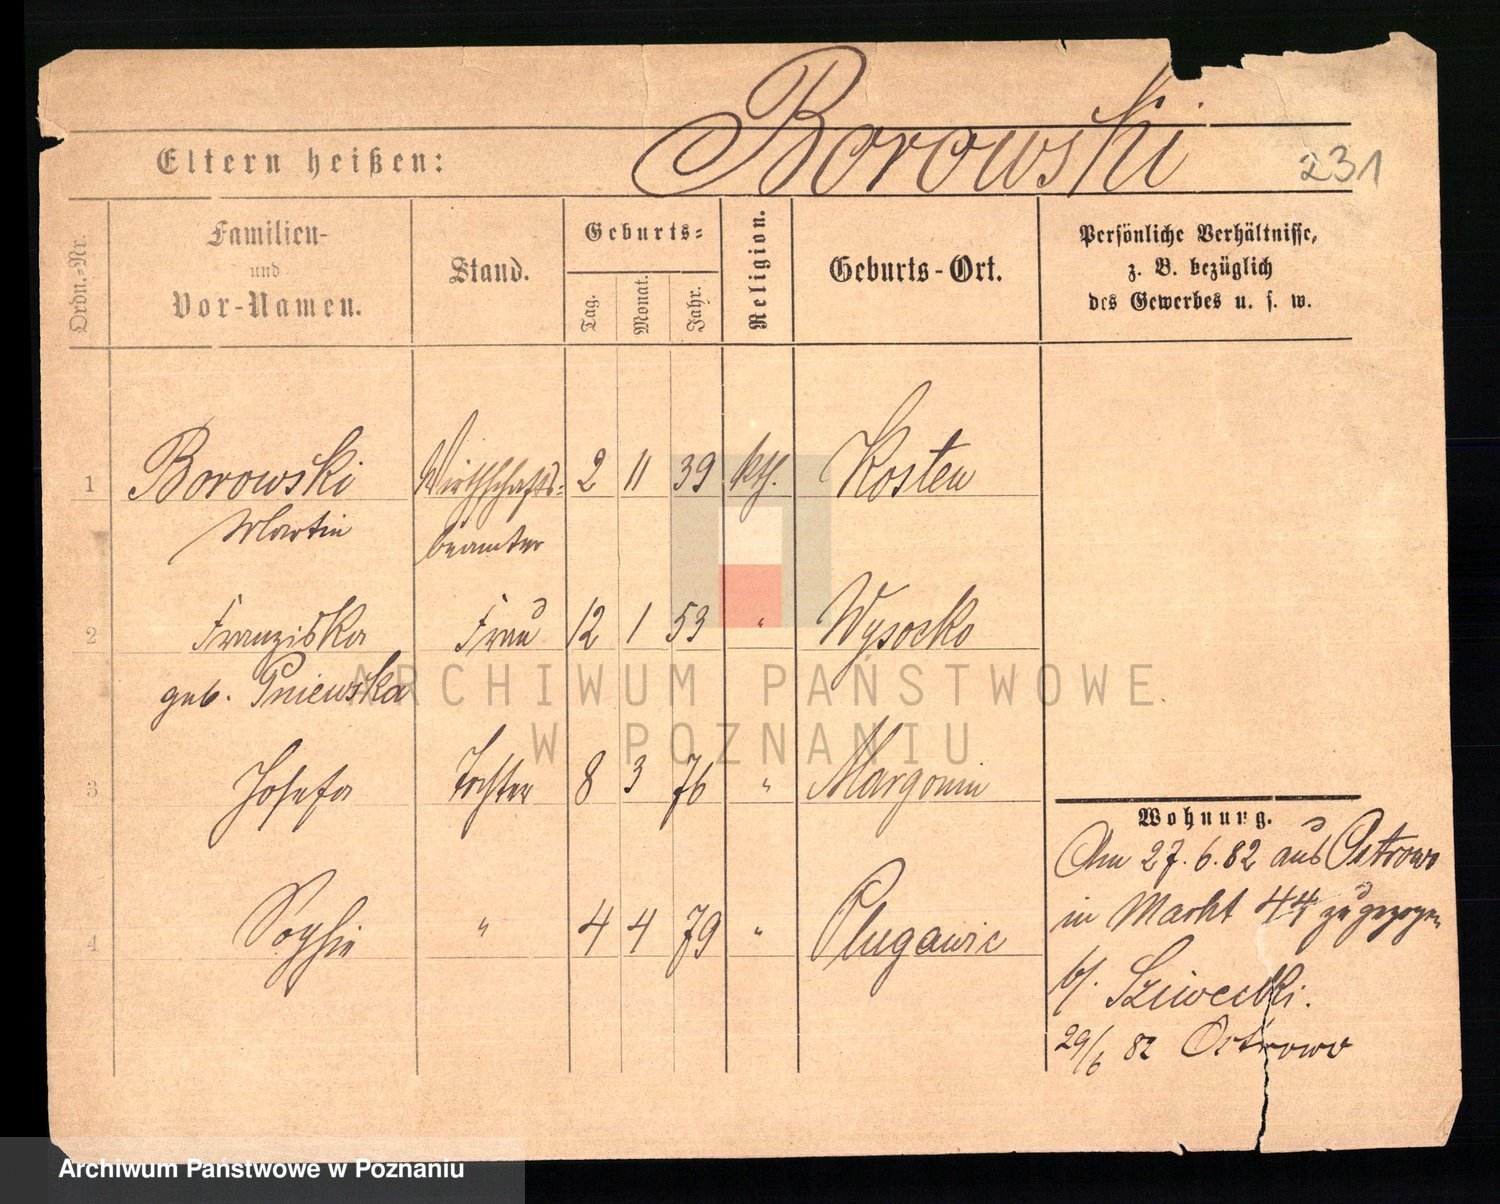 Borowski
231
Eltern heißen:
Ordn.-Nr.
Familien-
und
Vor-Namen.
Stand.
Geburts-
Tag.
Monat.
Jahr.
Religion.
Geburts-Ort.
Persönliche Verhältnisse,
z. B. bezüglich
des Gewerbes u. s. w.
1 Borowski Wirthschafts- 2 11 39 kth. Kosten
Martin beamter
2 Franziska Frau 12 1 53 " Wysocko
geb. Pniewska
3 Josefa Tochter 8 3 76 " Margonin
4 Sophie " 4 4 79 " Plugawic
Wohnung.
Am 27.6.82 aus Ostrowo
in Markt 44 zugezogen
b/.
29/6 82 Ostrowo
ARCHIWUM PAŃSTWOWE
W POZNANIU
Archiwum Państwowe w Poznaniu